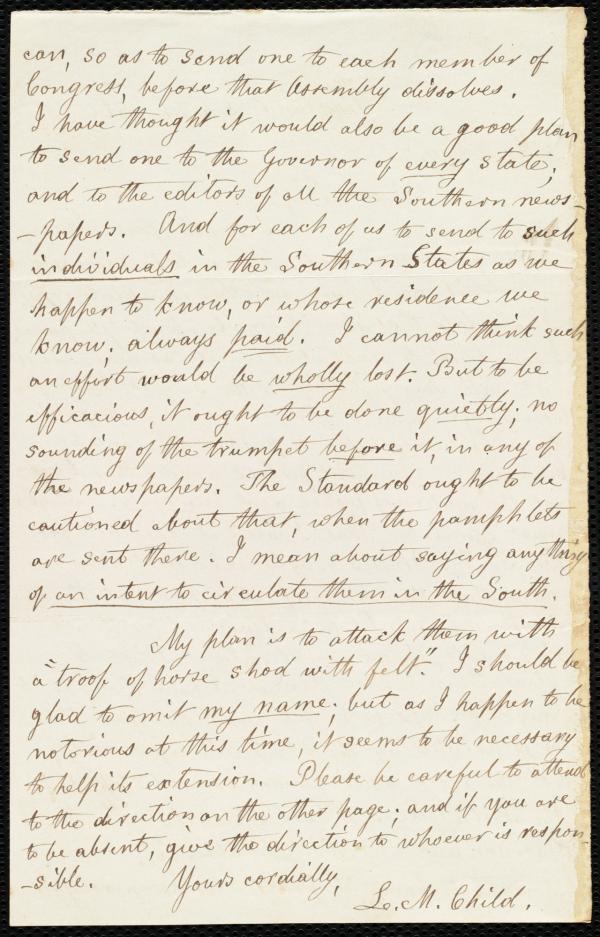 can, so as to send one to each member of
Congress, before that Assembly dissolves.
I have thought it would also be a good plan
to send one to the Governor of every state;
and to the editors of all the Southern news-
-papers. And for each of us to send to such
individuals in the Southern States as we
happen to know, or whose residence we
know; always paid. I cannot think such
an effort would be wholly lost. But to be
efficacious, it ought to be done quietly; no
sounding of the trumpet before it, in any of
the newspapers. The Standard ought to be
cautioned about that, when the pamphlets
are sent there. I mean about saying anything
of an intent to circulate them in the South.
My plan is to attack them with
"a troop of horse shod with felt". I should be
glad to omit my name; but as I happen to be
notorious at this time, it seems to be necessary
to help its extension. Please be careful to attend
to the direction on the other page; and if you are
to be absent, give the direction to whoever is respon-
-sible. Yours cordially,
L. M. Child.